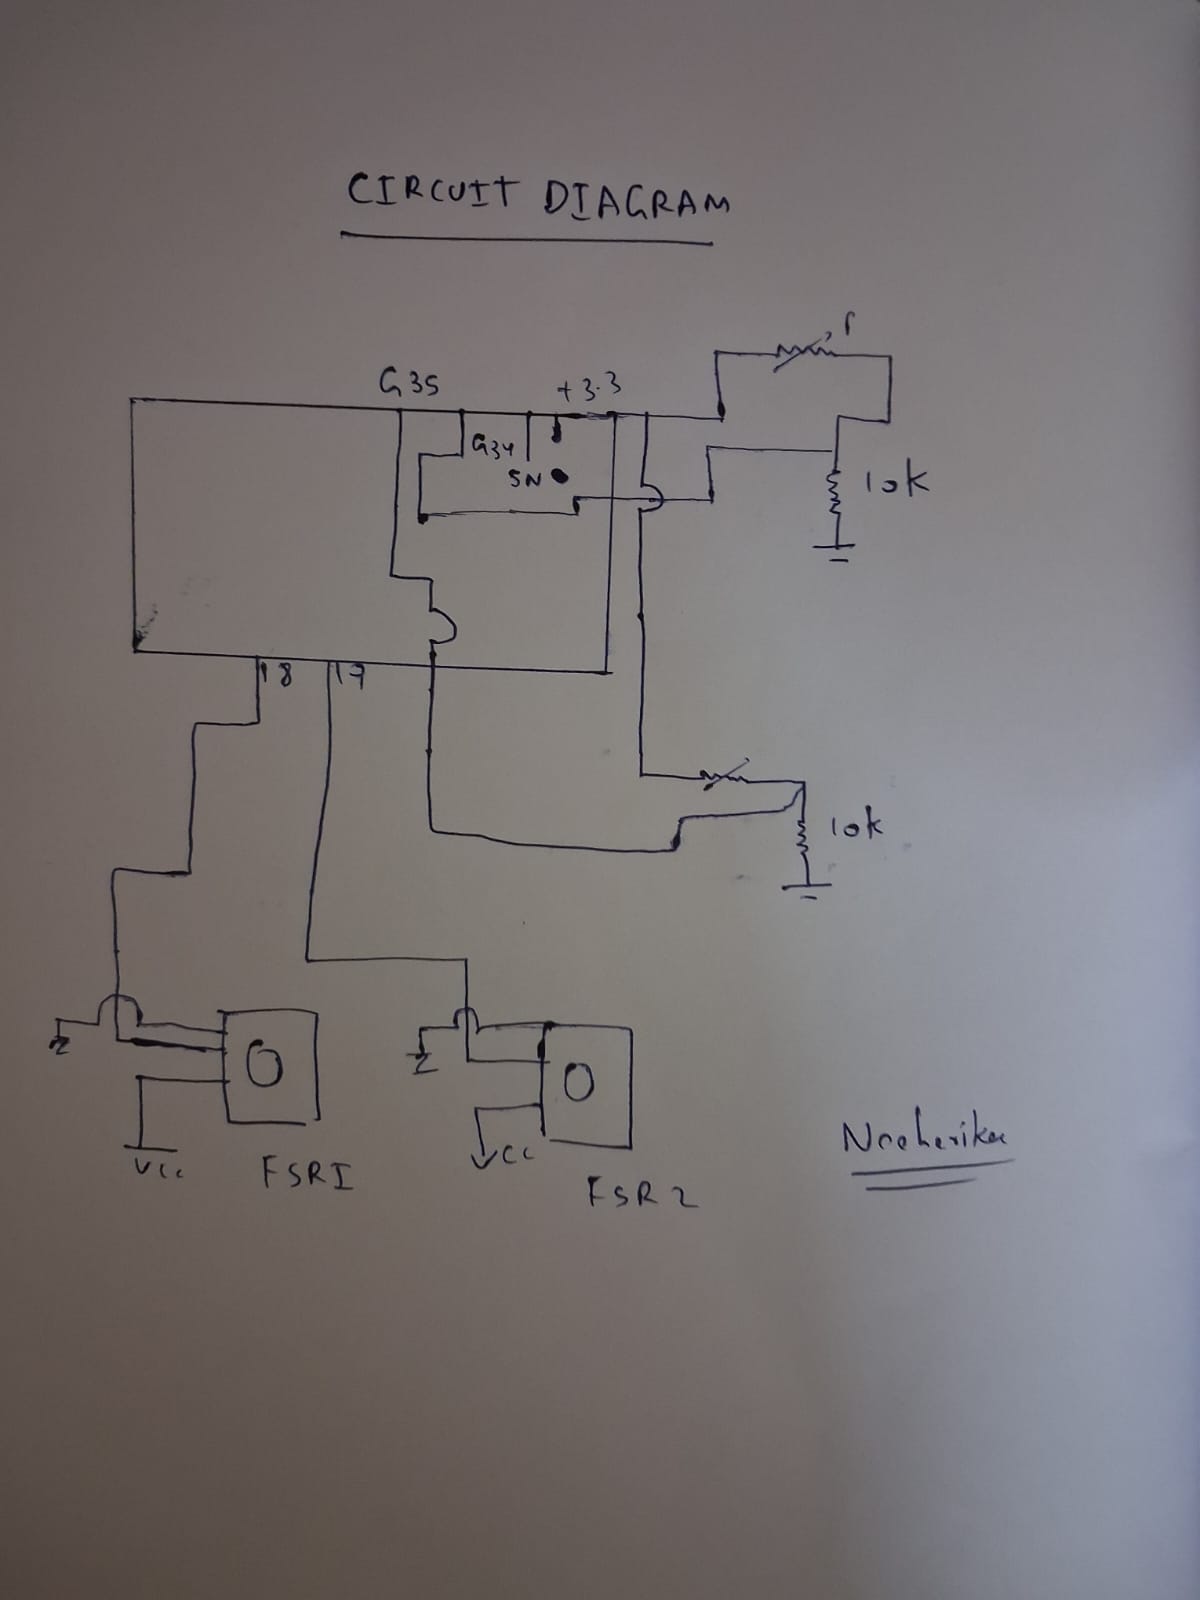 CIRCUIT DIAGRAM
G35
+3.3
G34
SN
10k
18
17
10k
VCC
FSR1
VCC
FSR2